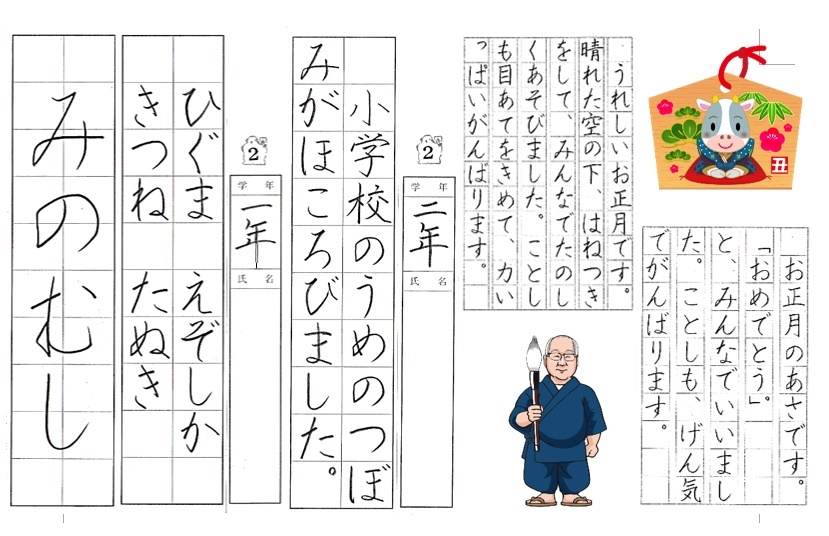 丑
お正月のあさです。
「おめでとう。」
と、みんなでいいまし
た。ことしも、げん気
でがんばります。
うれしいお正月です。
晴れた空の下、はねつき
をして、みんなでたのし
くあそびました。ことし
も目あてをきめて、力い
っぱいがんばります。
2
学年
二年
氏名
小学校のうめのつぼ
みがほころびました。
2
学年
一年
氏名
ひぐま えぞしか
きつね たぬき
みのむし